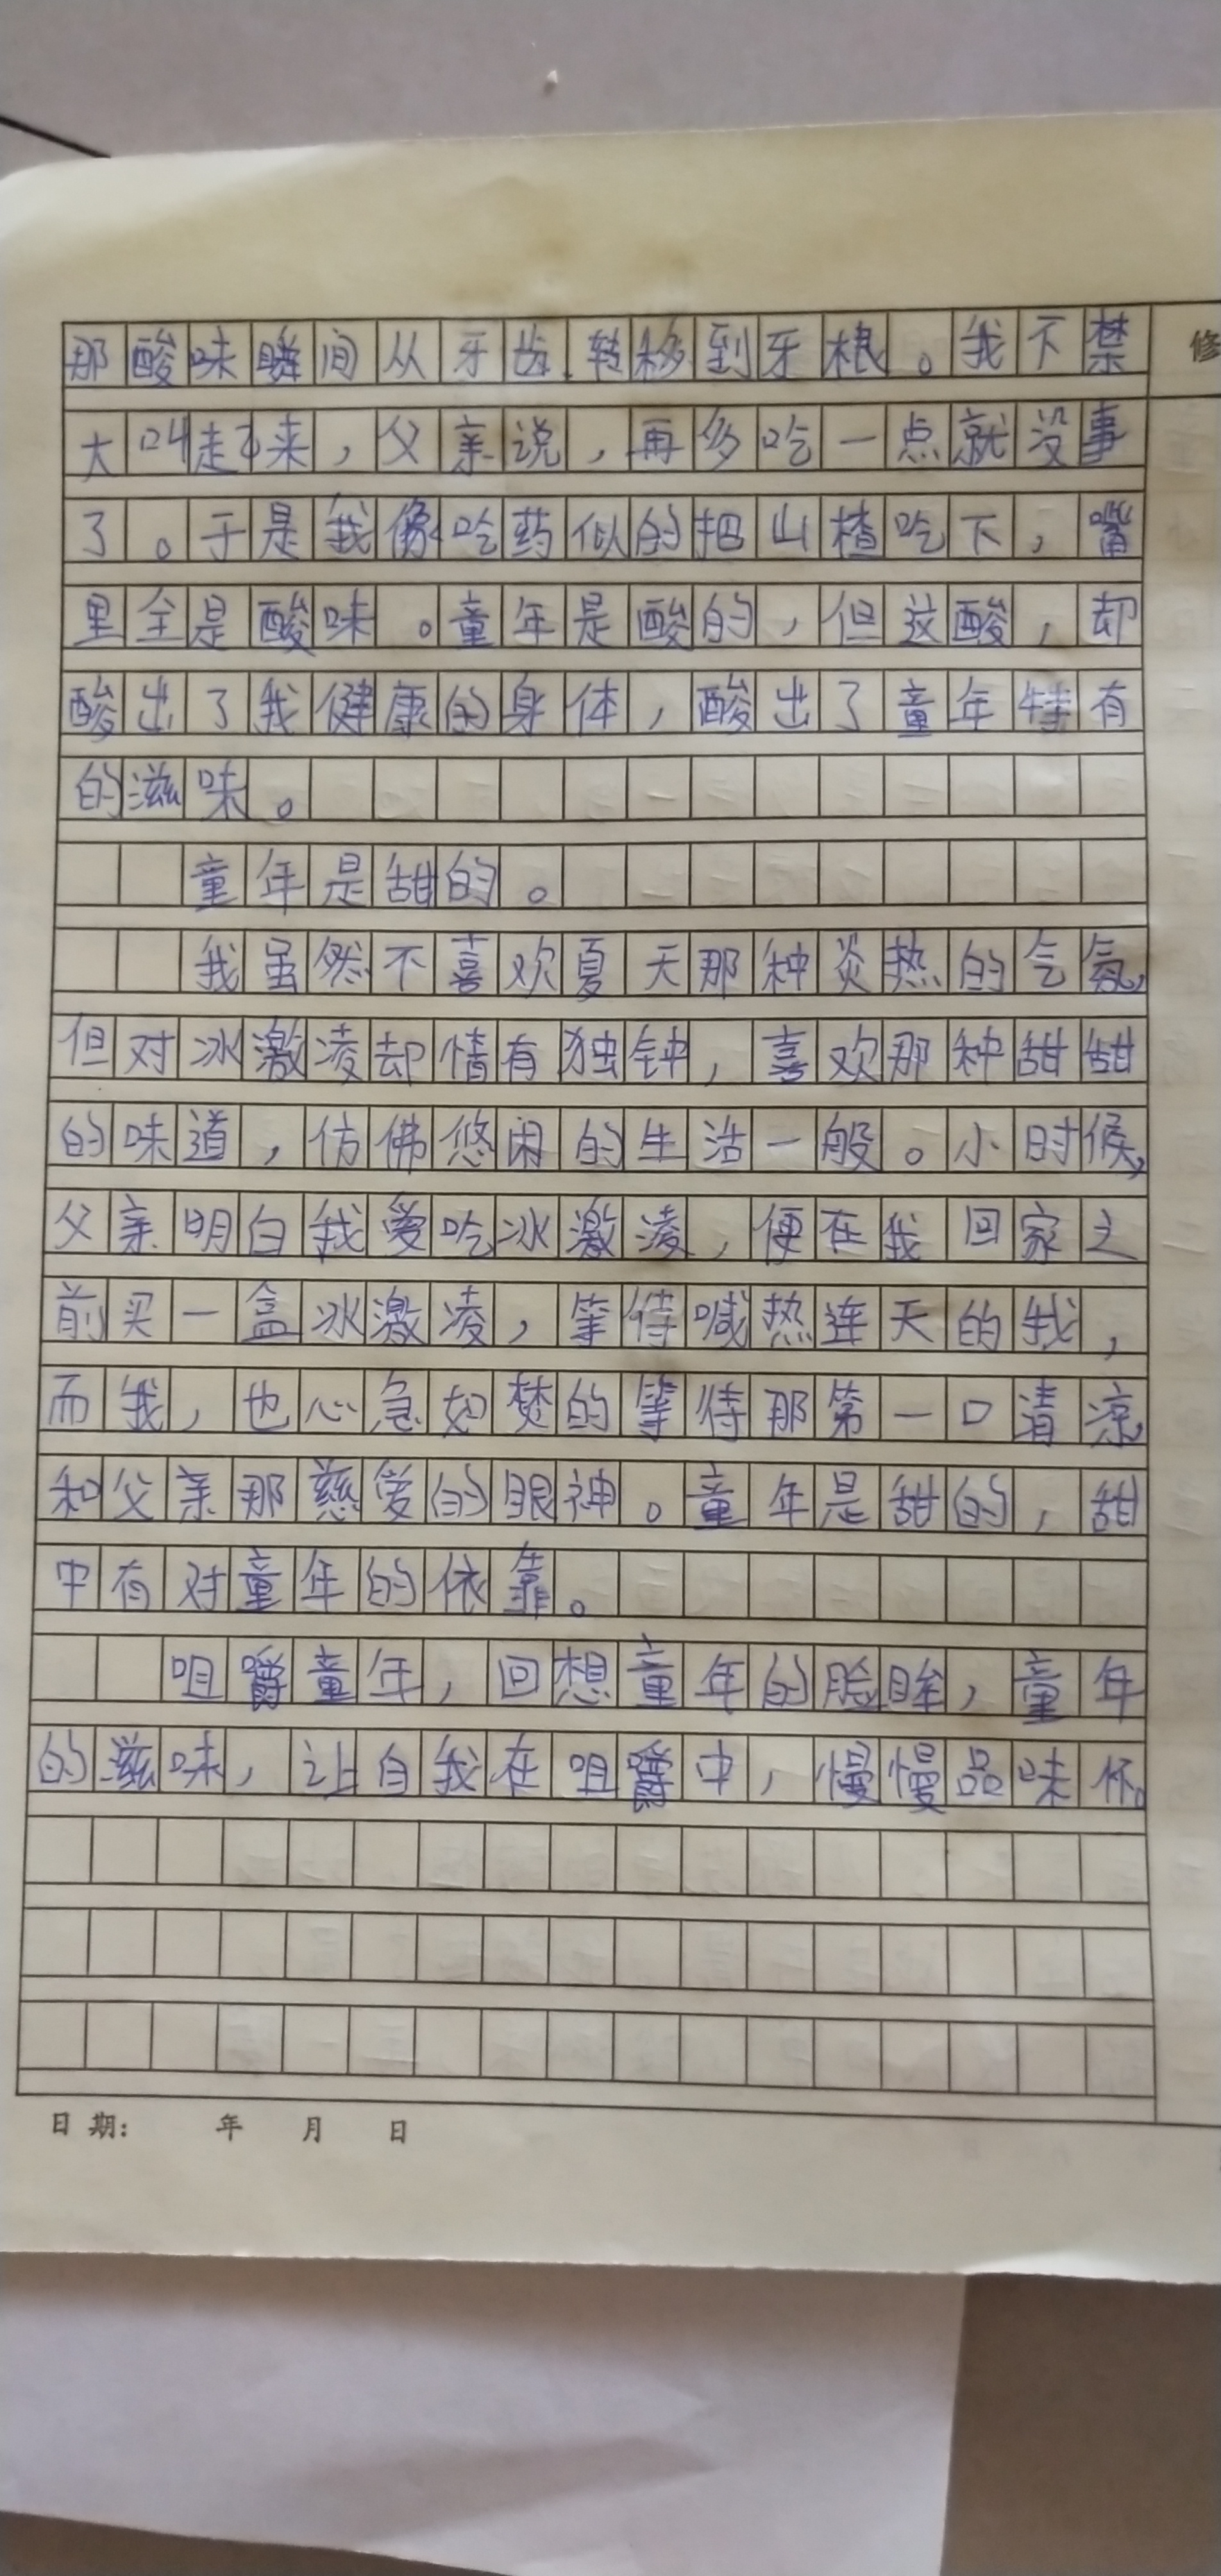 那酸味瞬间从牙齿转移到牙根。我不禁
修
大叫起来，父亲说，再多吃一点就没事
了。于是我像吃药似的把山楂吃下，嘴
里全是酸味。童年是酸的，但这酸，却
酸出了我健康的身体，酸出了童年特有
的滋味。
童年是甜的。
我虽然不喜欢夏天那种炎热的气氛，
但对冰激凌却情有独钟，喜欢那种甜甜
的味道，仿佛悠闲的生活一般。小时候，
父亲明白我爱吃冰激凌，便在我回家之
前买一盒冰激凌，等待喊热连天的我，
而我，也心急如焚的等待那第一口清凉，
和父亲那慈爱的眼神。童年是甜的，甜
中有对童年的依靠。
咀嚼童年，回想童年的脸眸，童年
的滋味，让自我在咀嚼中，慢慢品味怀。
日期： 年 月 日